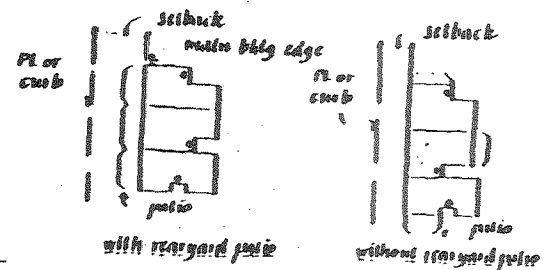 setback
main bldg edge
PL or
curb
patio
with rearyard patio
setback
PL or
curb
patio
without rearyard patio